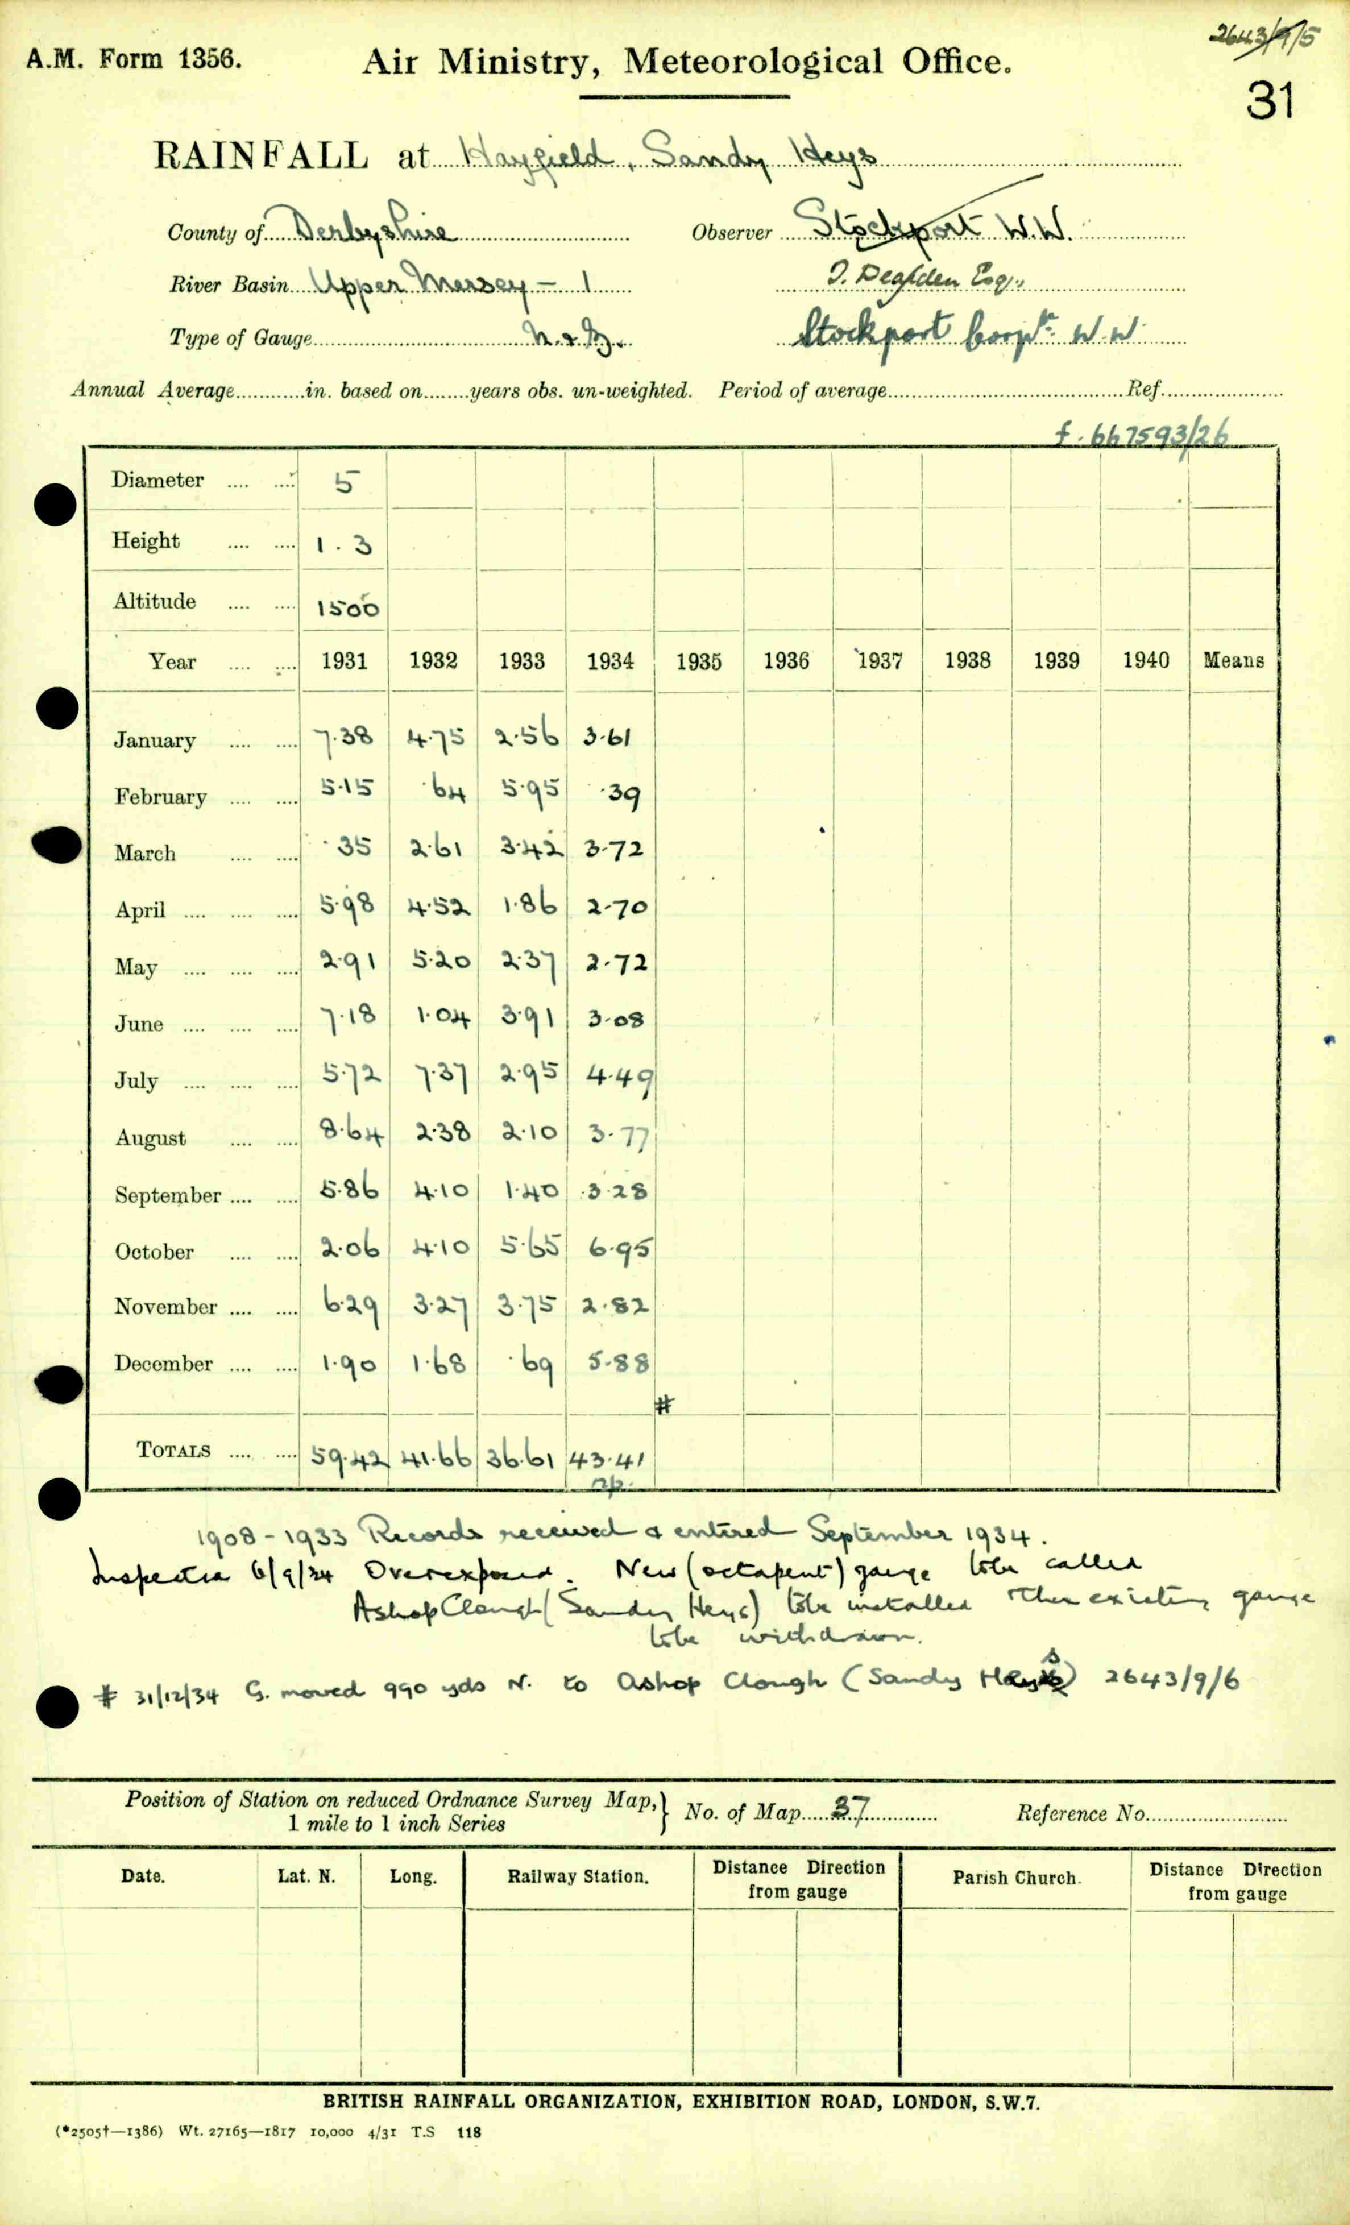 2643/9/5
A.M. Form 1356. Air Ministry, Meteorological Office.
31
RAINFALL at Hayfield, Sandy Heys
County of Derbyshire Observer Stockport W.W.
River Basin Upper Mersey - 1 Esq.,
Type of Gauge Stockport Corpn. W.W
Annual Average in. based on years obs. un-weighted. Period of average Ref.
f. 667593/26
Diameter 5
Height 1.3
Altitude 1500
Year 1931 1932 1933 1934 1935 1936 1937 1938 1939 1940 Means
January 7.38 4.75 2.56 3.61
February 5.15 .64 5.95 .39
March .35 2.61 3.42 3.72
April 5.98 4.52 1.86 2.70
May 2.91 5.20 2.37 2.72
June 7.18 1.04 3.91 3.08
July 5.72 7.37 2.95 4.49
August 8.64 2.38 2.10 3.77
September 5.86 4.10 1.40 3.28
October 2.06 4.10 5.65 6.95
November 6.29 3.27 3.75 2.82
December 1.90 1.68 .69 5.88
#
TOTALS 59.42 41.66 36.61 43.41
1908 - 1933 Records received & entered September 1934.
Inspection 6/9/34 Overexposed. New (octapent) gauge to be called
Ashop Clough (Sandy Heys) to be installed & the existing gauge
to be withdrawn.
# 31/12/34 G. moved 990 yds N. to Ashop Clough (Sandy Heys) 2643/9/6
Position of Station on reduced Ordnance Survey Map, } No. of Map 37 Reference No.
1 mile to 1 inch Series
Date. Lat. N. Long. Railway Station. Distance Direction from gauge Parish Church. Distance Direction from gauge
BRITISH RAINFALL ORGANIZATION, EXHIBITION ROAD, LONDON, S.W.7.
(*2505†—1386) Wt. 27165—1817 10,000 4/31 T.S 118